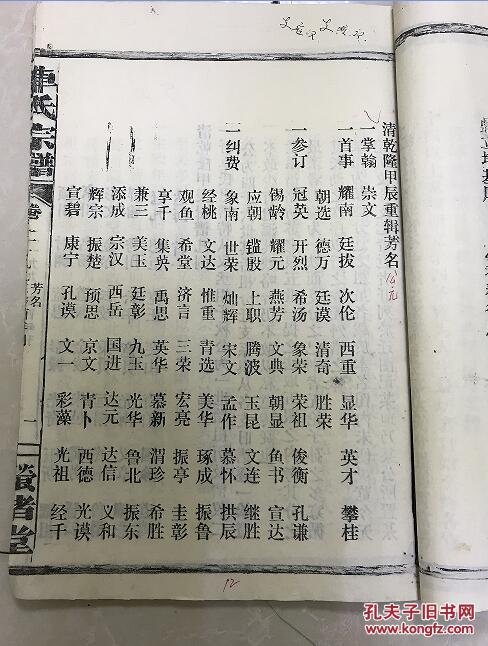 清乾隆甲辰重辑芳名 公元
一掌翰 崇文
一首事 耀南 廷拔 次伦 西重 显华 英才 攀桂
朝选 德万 廷谟 清奇 胜荣
一参订 冠英 开烈 希汤 象荣 荣祖 俊衡 孔谦
锡龄 耀元 燕芳 文典 朝显 鱼书 宣达
应朝 镒殷 上职 腾波 玉昆 文连 继胜
一纠费 象南 世荣 灿辉 宋文 孟作 慕怀 拱辰
经桃 文达 惟重 青选 美华 琢成 振鲁
观鱼 希堂 济言 三荣 宏亮 振亭 圭彰
享千 集英 禹思 英华 慕新 渭珍 希胜
兼三 美玉 廷彰 九玉 光华 鲁北 振东
添成 宗汉 西岳 国进 达元 达信 义和
辉宗 振楚 预思 京文 青卜 西德 光谟
宣碧 康宁 孔谟 文一 彩藻 光祖 经千
氏宗谱
卷
芳名
一
堂
12
孔夫子旧书网
KONGFZ.COM